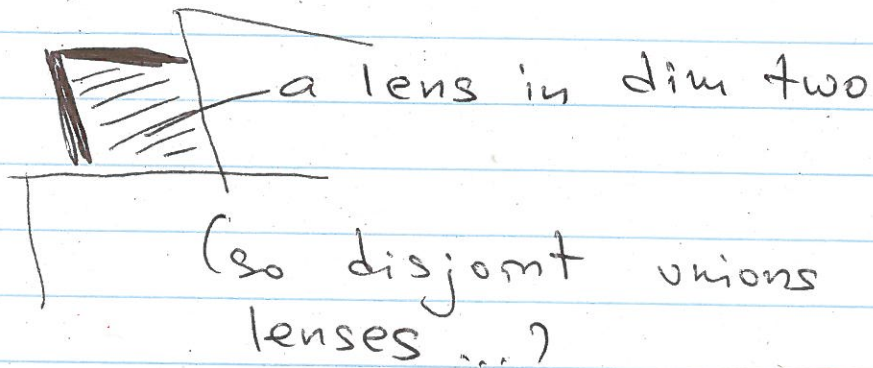 a lens in dim two
(so disjoint unions
lenses ...)